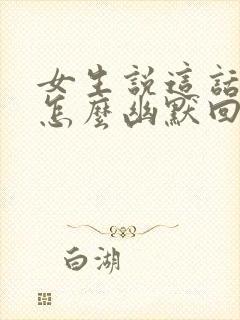 女生說這話
怎麼幽默回
白湖